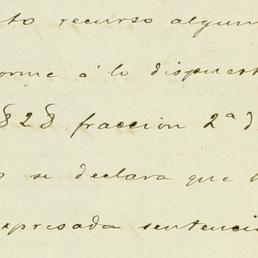 to recurso algun
orme á lo dispuest
828 fraccion 2ª d
se declara que
xpresada sentenci